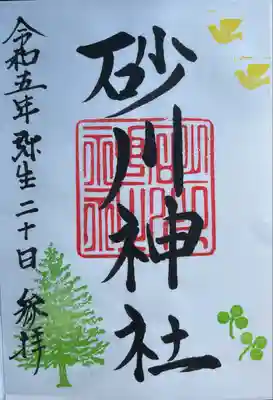 砂川神社
令和五年弥生二十日 参拝